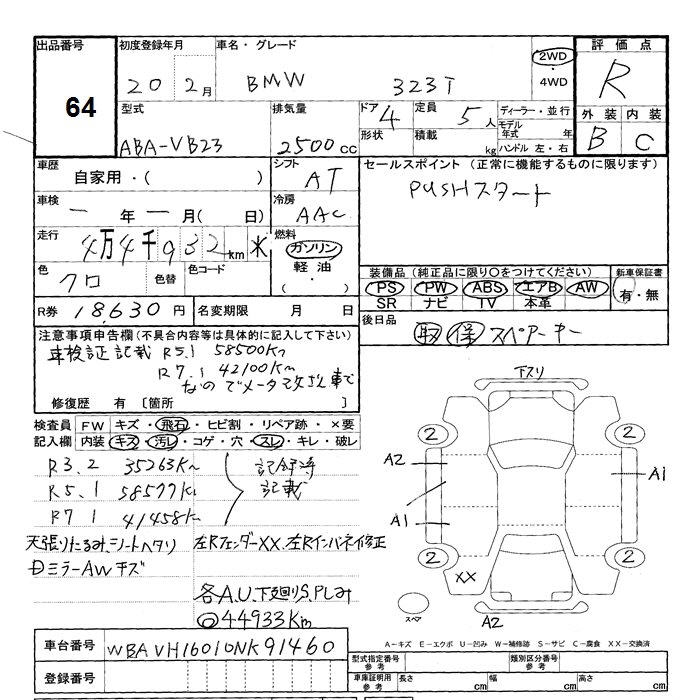 出品番号
64
初度登録年月
20 2月
車名・グレード
BMW 323I
2WD
・
4WD
評価点
R
外装 内装
B C
型式
ABA-VB23
排気量
2500cc
ドア 4
形状
定員 5人
積載 kg
ディーラー・並行
モデル年式 年
ハンドル 左・右
車歴
自家用・( )
シフト
AT
車検
一年一月( 日)
冷房
AAC
走行
4万4千932km ＊
燃料
ガソリン
軽油
( ・ )
色
クロ
色替
色コード
R券 18,630円
名変期限 月 日
セールスポイント (正常に機能するものに限ります)
PUSHスタート
装備品 (純正品に限り○をつけてください)
PS PW ABS エアB AW
SR ナビ TV 本革
新車保証書
有・無
後日品
取 保 スペアーキー
注意事項申告欄 (不具合内容等は具体的に記入して下さい)
車検証記載 R5.1 58500Km
R7.1 42100Km
なのでメータ改ざん車で
修復歴 有 〔箇所 〕
検査員 FW キズ・飛石・ヒビ割・リペア跡・×要
記入欄 内装 キズ・汚レ・コゲ・穴・スレ・キレ・破レ
R3.2 35263Km
R5.1 58577Km
R7.1 41458Km
記録簿
記載
天張りたるみ、シートヘタリ
左Rフェンダー XX、左Rインパネ修正
Dミラー AWキズ
各A.U、下廻りS、Pしみ
◎44933Km
下スリ
2 2
A2 A1
A1
2 2
XX
スペア
A2
A－キズ E－エクボ U－凹み W－補修跡 S－サビ C－腐食 XX－交換済
車台番号 WBAVH16010NK91460
登録番号
型式指定番号 参考
類別区分番号 参考
車庫証明用 参考
長さ cm 幅 cm 高さ cm